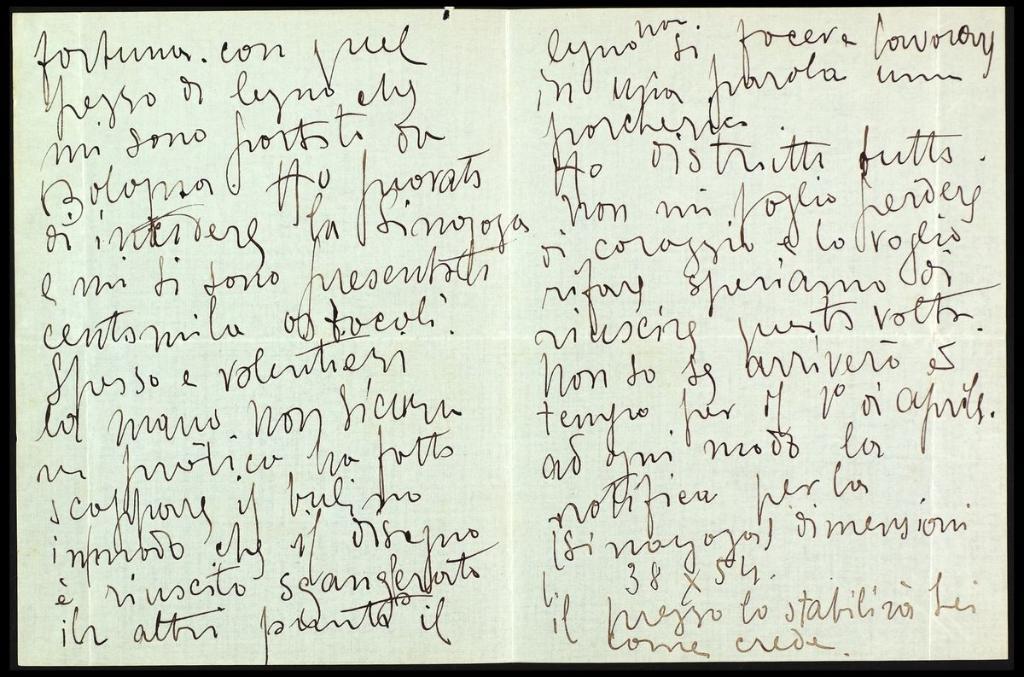 fortuna. con quel
pezzo di legno che
mi sono portato da
Bologna. Ho provato
di incidere la Sinagoga
e mi si sono presentati
centomila ostacoli.
Spesso e volentieri
la mano non sicura
ne pratica ha fatto
scappare il bulino
inmodo che il disegno
è riuscito sgangherato
in altri punti il
legno non si faceva lavorare
in una parola una
porcheria.
Ho distrutto tutto.
Non mi voglio perdere
di coraggio e lo voglio
rifare, speriamo di
riuscire questa volta.
Non so se arriverò a
tempo per il 1º di aprile.
ad ogni modo la
notifica per la
(Sinagoga) dimensioni
38 x 54.
il prezzo lo stabilirà Lei
come crede.